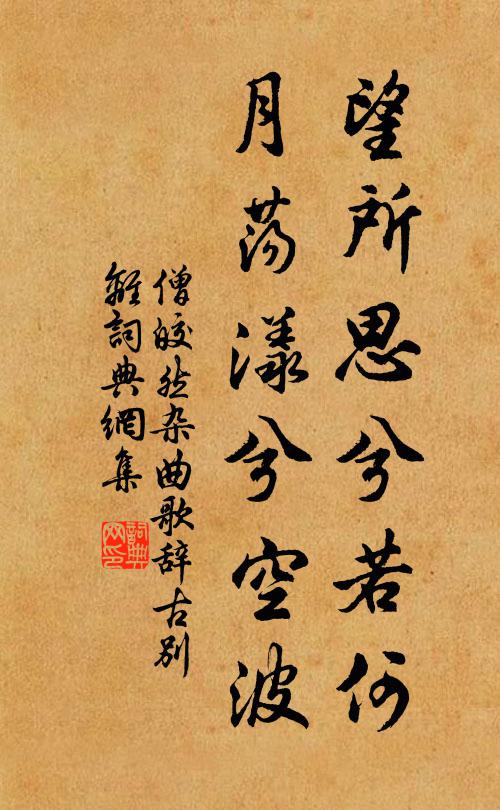 望所思兮若何
月荡漾兮空波
僧皎然杂曲歌辞古别
離詞典網集
詞典网印